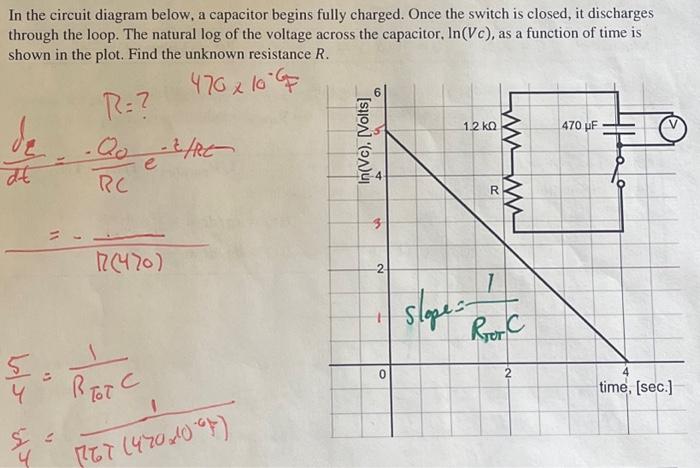 In the circuit diagram below, a capacitor begins fully charged. Once the switch is closed, it discharges
through the loop. The natural log of the voltage across the capacitor, ln(Vc), as a function of time is
shown in the plot. Find the unknown resistance R.
R=?
470 x 10^-6F
dq/dt = -Q0/RC e^-t/RC
= - ___/R(470)
5/4 = 1/R TOT C
5/4 = 1/RTOT (470x10^-6F)
ln(Vc), [Volts]
6
5
4
3
2
1
0
2
4
time, [sec.]
slope = 1/RTOT C
1.2 kΩ
R
470 µF
V